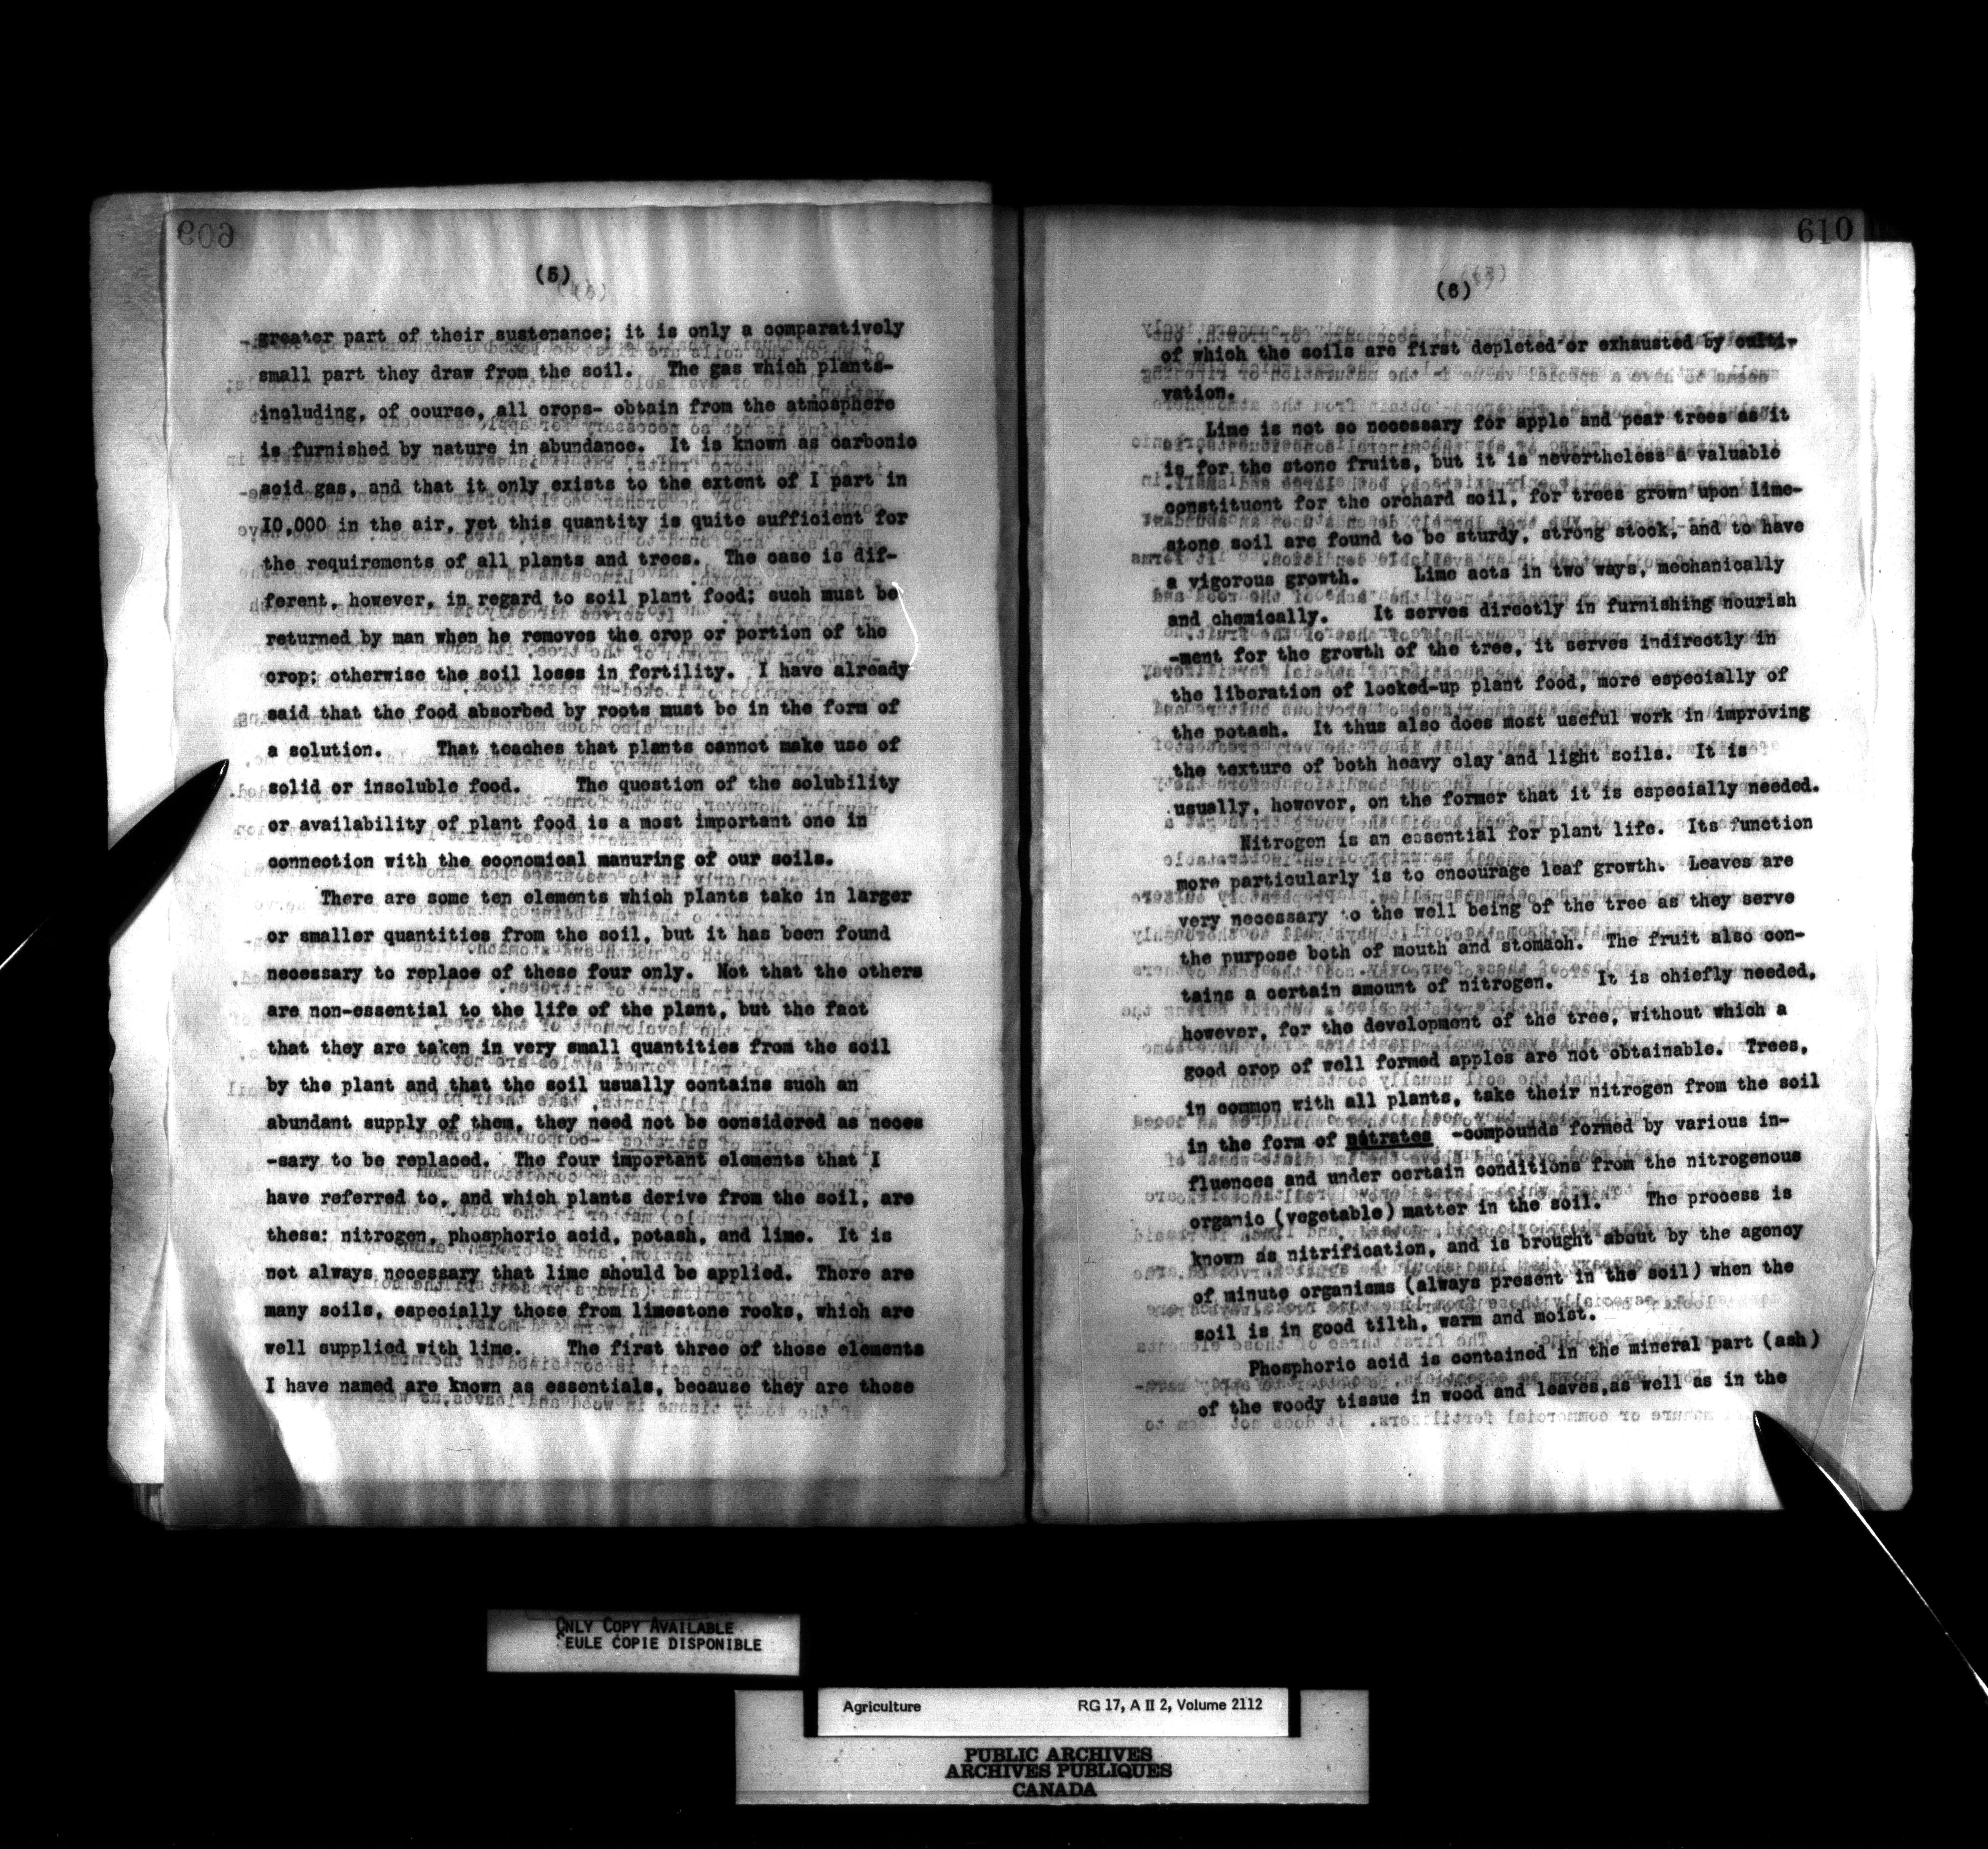 609
(5)
greater part of their sustenance; it is only a comparatively
small part they draw from the soil. The gas which plants-
including, of course, all crops- obtain from the atmosphere
is furnished by nature in abundance. It is known as carbonic
acid gas, and that it only exists to the extent of I part in
I0,000 in the air, yet this quantity is quite sufficient for
the requirements of all plants and trees. The case is dif-
ferent, however, in regard to soil plant food; such must be
returned by man when he removes the crop or portion of the
crop; otherwise the soil loses in fertility. I have already
said that the food absorbed by roots must be in the form of
a solution. That teaches that plants cannot make use of
solid or insoluble food. The question of the solubility
or availability of plant food is a most important one in
connection with the economical manuring of our soils.
There are some ten elements which plants take in larger
or smaller quantities from the soil, but it has been found
necessary to replace of these four only. Not that the others
are non-essential to the life of the plant, but the fact
that they are taken in very small quantities from the soil
by the plant and that the soil usually contains such an
abundant supply of them, they need not be considered as neces
-sary to be replaced. The four important elements that I
have referred to, and which plants derive from the soil, are
these: nitrogen, phosphoric acid, potash, and lime. It is
not always necessary that lime should be applied. There are
many soils, especially those from limestone rocks, which are
well supplied with lime. The first three of those elements
I have named are known as essentials, because they are those
610
(6)
of which the soils are first depleted or exhausted by culti-
vation.
Lime is not so necessary for apple and pear trees as it
is for the stone fruits, but it is nevertheless a valuable
constituent for the orchard soil, for trees grown upon lime-
stone soil are found to be sturdy, strong stock, and to have
a vigorous growth. Lime acts in two ways, mechanically
and chemically. It serves directly in furnishing nourish
-ment for the growth of the tree, it serves indirectly in
the liberation of locked-up plant food, more especially of
the potash. It thus also does most useful work in improving
the texture of both heavy clay and light soils. It is
usually, however, on the former that it is especially needed.
Nitrogen is an essential for plant life. Its function
more particularly is to encourage leaf growth. Leaves are
very necessary to the well being of the tree as they serve
the purpose both of mouth and stomach. The fruit also con-
tains a certain amount of nitrogen. It is chiefly needed,
however, for the development of the tree, without which a
good crop of well formed apples are not obtainable. Trees,
in common with all plants, take their nitrogen from the soil
in the form of nitrates -compounds formed by various in-
fluences and under certain conditions from the nitrogenous
organic (vegetable) matter in the soil. The process is
known as nitrification, and is brought about by the agency
of minute organisms (always present in the soil) when the
soil is in good tilth, warm and moist.
Phosphoric acid is contained in the mineral part (ash)
of the woody tissue in wood and leaves,as well as in the
ONLY COPY AVAILABLE
SEULE COPIE DISPONIBLE
Agriculture RG 17, A II 2, Volume 2112
PUBLIC ARCHIVES
ARCHIVES PUBLIQUES
CANADA